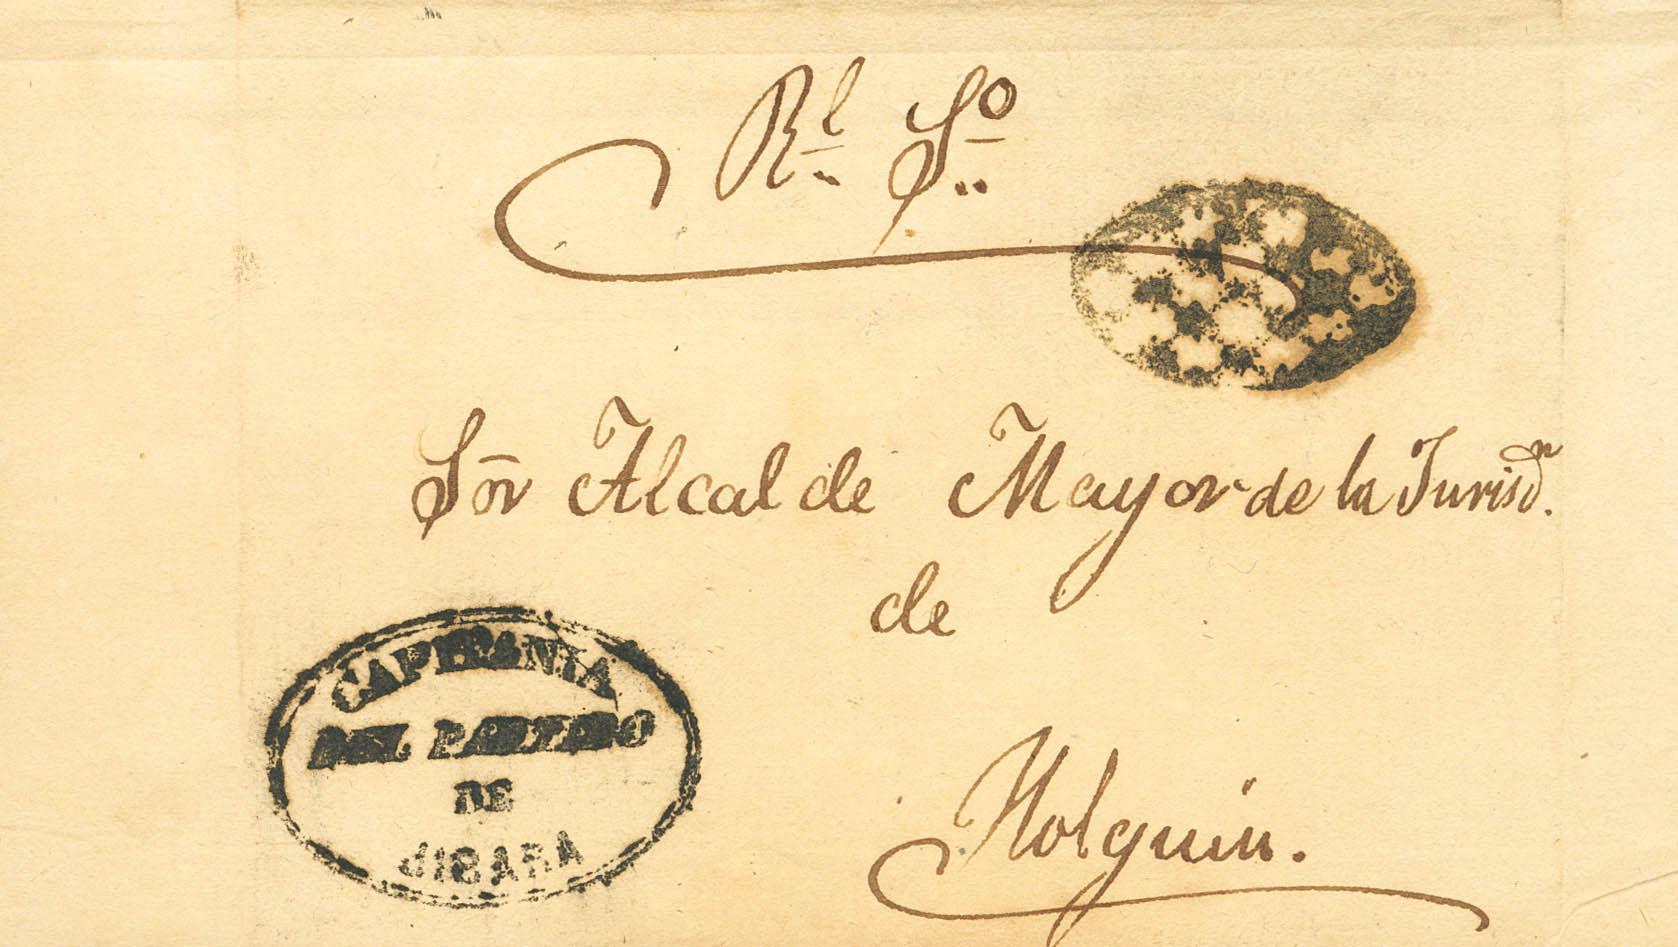 Rl. So.
Sor Alcalde Mayor de la Jurisdn.
de
Holguin.
CAPITANIA
DEL PARTIDO
DE
JIBARA